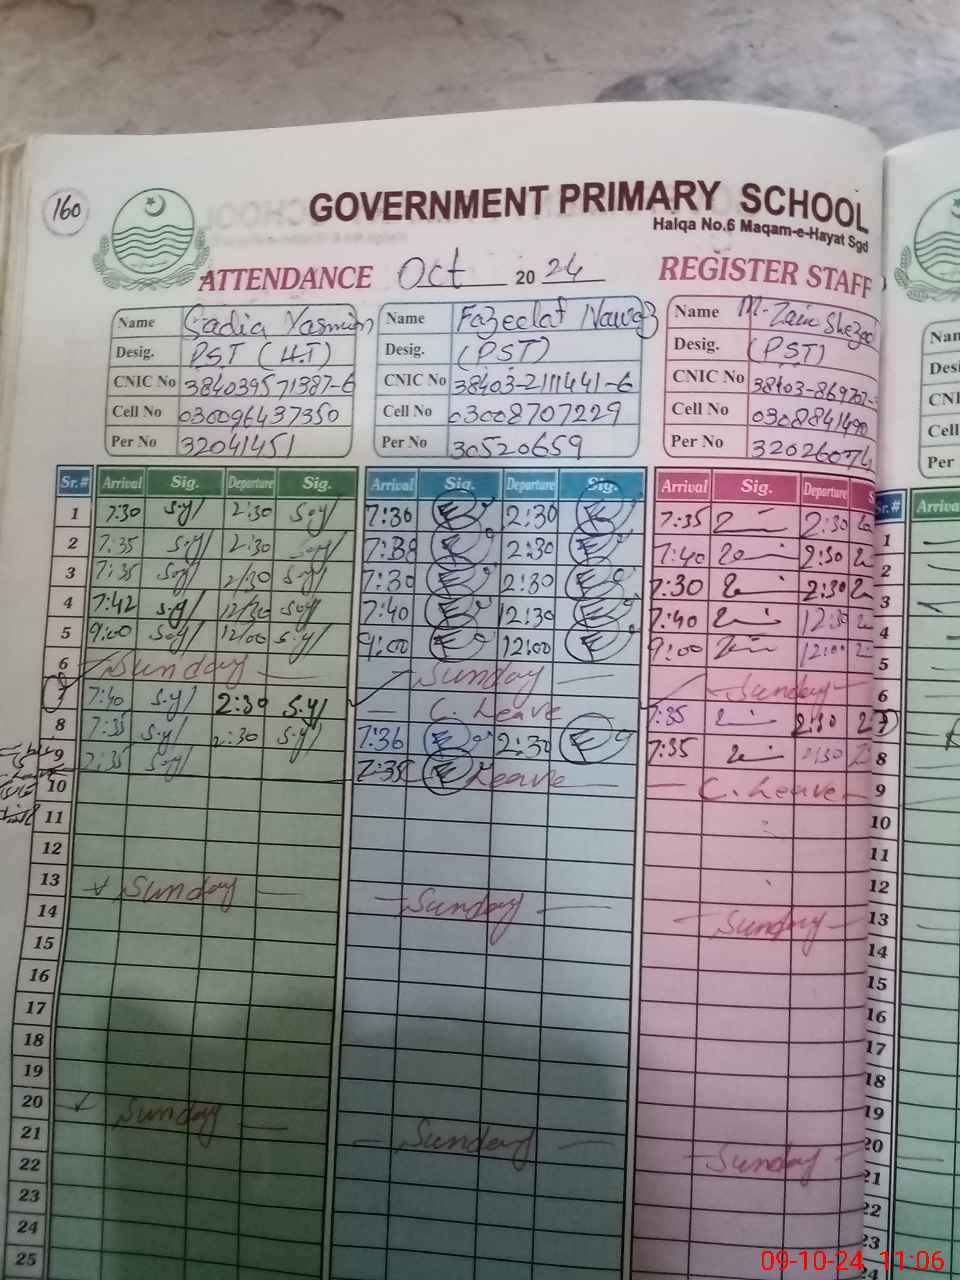 160
GOVERNMENT PRIMARY SCHOOL
Halqa No.6 Maqam-e-Hayat Sgd
ATTENDANCE Oct 2024 REGISTER STAFF
Name Sadia Yasmin Name Fazeelat Nawaz Name M. Zain Shezad
Desig. PST (H.T) Desig. (PST) Desig. (PST)
CNIC No 384039571387-6 CNIC No 38403-2111441-6 CNIC No
Cell No 030096437350 Cell No 03008707229 Cell No 0308841490
Per No 32041451 Per No 30520659 Per No 3202607
Sr.# Arrival Sig. Departure Sig. Arrival Sig. Departure Sig. Arrival Sig. Departure S Sr.# Arriva
1 7:30 S.y/ 2:30 S.y/ 7:30 E 2:30 E 7:35 2:30 1
2 7:35 S.y/ 2:30 S.y/ 7:38 E 2:30 E 7:40 2:30 2
3 7:35 S.y/ 2/30 S.y/ 7:30 E 2:30 E 7:30 2:30 3
4 7:42 S.y/ 12/30 S.y/ 7:40 E 12:30 E 7:40 12:30 4
5 9:00 S.y/ 12/00 S.y/ 9:00 E 12:00 E 9:00 12:00 5
6 Sunday Sunday Sunday 6
7 7:40 S.y/ 2:30 S.y/ C. Leave 7:35 2:30 7
8 7:35 S.y/ 2:30 S.y/ 7:36 E 2:30 E 7:35 2:30 8
9 7:35 S.y/ 7:35 E Leave C. Leave 9
10 10
11 11
12 12
13 Sunday Sunday Sunday 13
14 14
15 15
16 16
17 17
18 18
19 19
20 Sunday Sunday Sunday 20
21 21
22 22
23 23
24 24
25
Nam
Desi
CNI
Cell
Per
09-10-24 11:06